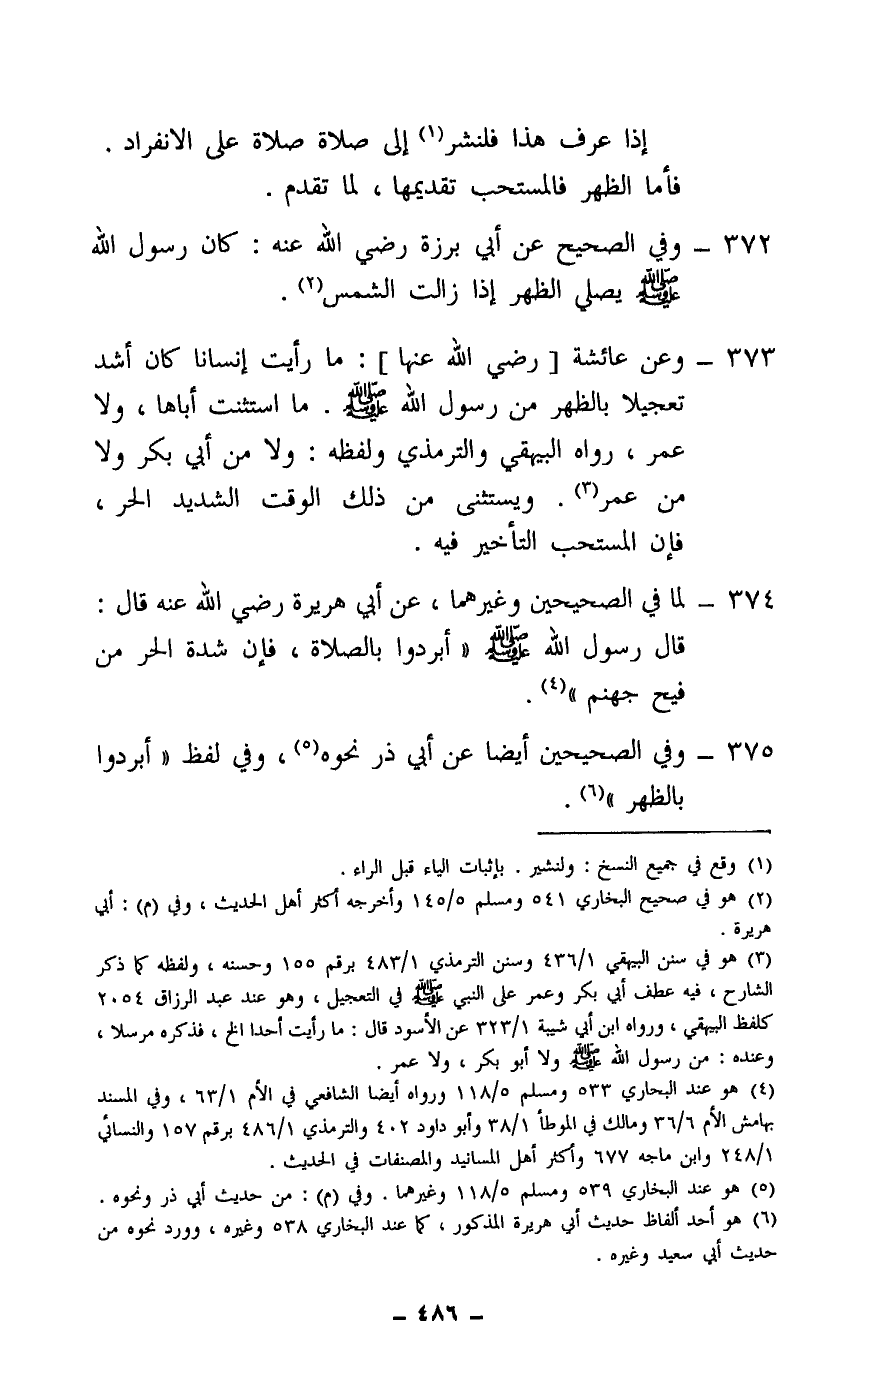 إذا عرف هذا فلنشر(١) إلى صلاة صلاة على الانفراد .
فأما الظهر فالمستحب تقديمها ، لما تقدم .
٣٧٢ – وفي الصحيح عن أبي برزة رضي الله عنه : كان رسول الله
ﷺ يصلي الظهر إذا زالت الشمس(٢) .
٣٧٣ – وعن عائشة [ رضي الله عنها ] : ما رأيت إنسانا كان أشد
تعجيلا بالظهر من رسول الله ﷺ . ما استثنت أباها ، ولا
عمر ، رواه البيهقي والترمذي ولفظه : ولا من أبي بكر ولا
من عمر(٣) . ويستثنى من ذلك الوقت الشديد الحر ،
فإن المستحب التأخير فيه .
٣٧٤ – لما في الصحيحين وغيرهما ، عن أبي هريرة رضي الله عنه قال :
قال رسول الله ﷺ « أبردوا بالصلاة ، فإن شدة الحر من
فيح جهنم »(٤) .
٣٧٥ – وفي الصحيحين أيضا عن أبي ذر نحوه(٥) ، وفي لفظ « أبردوا
بالظهر »(٦) .
(١) وقع في جميع النسخ : ولنشير . بإثبات الياء قبل الراء .
(٢) هو في صحيح البخاري ٥٤١ ومسلم ١٤٥/٥ وأخرجه أكثر أهل الحديث ، وفي (م) : أبي
هريرة .
(٣) هو في سنن البيهقي ٤٣٦/١ وسنن الترمذي ٤٨٣/١ برقم ١٥٥ وحسنه ، ولفظه كما ذكر
الشارح ، فيه عطف أبي بكر وعمر على النبي ﷺ في التعجيل ، وهو عند عبد الرزاق ٢٠٥٤
كلفظ البيهقي ، ورواه ابن أبي شيبة ٣٢٣/١ عن الأسود قال : ما رأيت أحدا الخ ، فذكره مرسلا ،
وعنده : من رسول الله ﷺ ولا أبو بكر ، ولا عمر .
(٤) هو عند البخاري ٥٣٣ ومسلم ١١٨/٥ ورواه أيضا الشافعي في الأم ٦٣/١ ، وفي المسند
بهامش الأم ٣٦/٦ ومالك في الموطأ ٣٨/١ وأبو داود ٤٠٢ والترمذي ٤٨٦/١ برقم ١٥٧ والنسائي
٢٤٨/١ وابن ماجه ٦٧٧ وأكثر أهل المسانيد والمصنفات في الحديث .
(٥) هو عند البخاري ٥٣٩ ومسلم ١١٨/٥ وغيرهما . وفي (م) : من حديث أبي ذر ونحوه .
(٦) هو أحد ألفاظ حديث أبي هريرة المذكور ، كما عند البخاري ٥٣٨ وغيره ، وورد نحوه من
حديث أبي سعيد وغيره .
– ٤٨٦ –